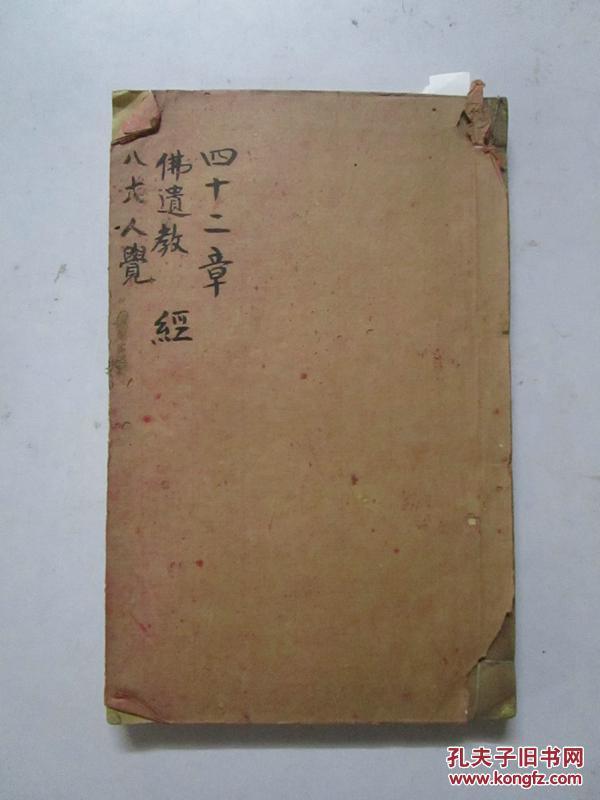 四十二章
佛遺教 經
八大人覺
孔夫子旧书网
www.kongfz.com